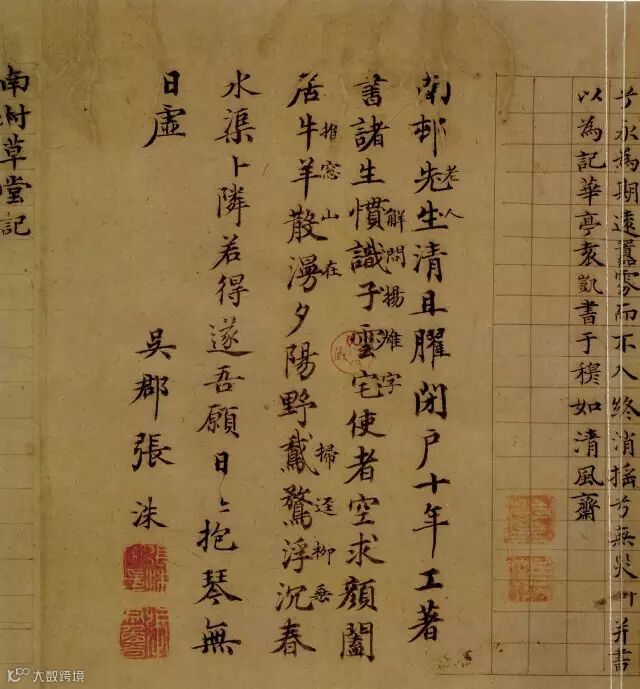 兮永為期遠囂雰而不入終消搖兮無并書
以為記華亭袁凱書于穆如清風齋
南邨先生清且臞閉戶十年工著
老人
解問揚雄字
書諸生慣識子雲宅使者空求顏闔
推窓山在
掃逕柳垂
居牛羊散漫夕陽野鳧鶩浮沉春
水渠卜隣若得遂吾願日〻抱琴無
日虛
吳郡張洙
南村草堂記
大数跨境